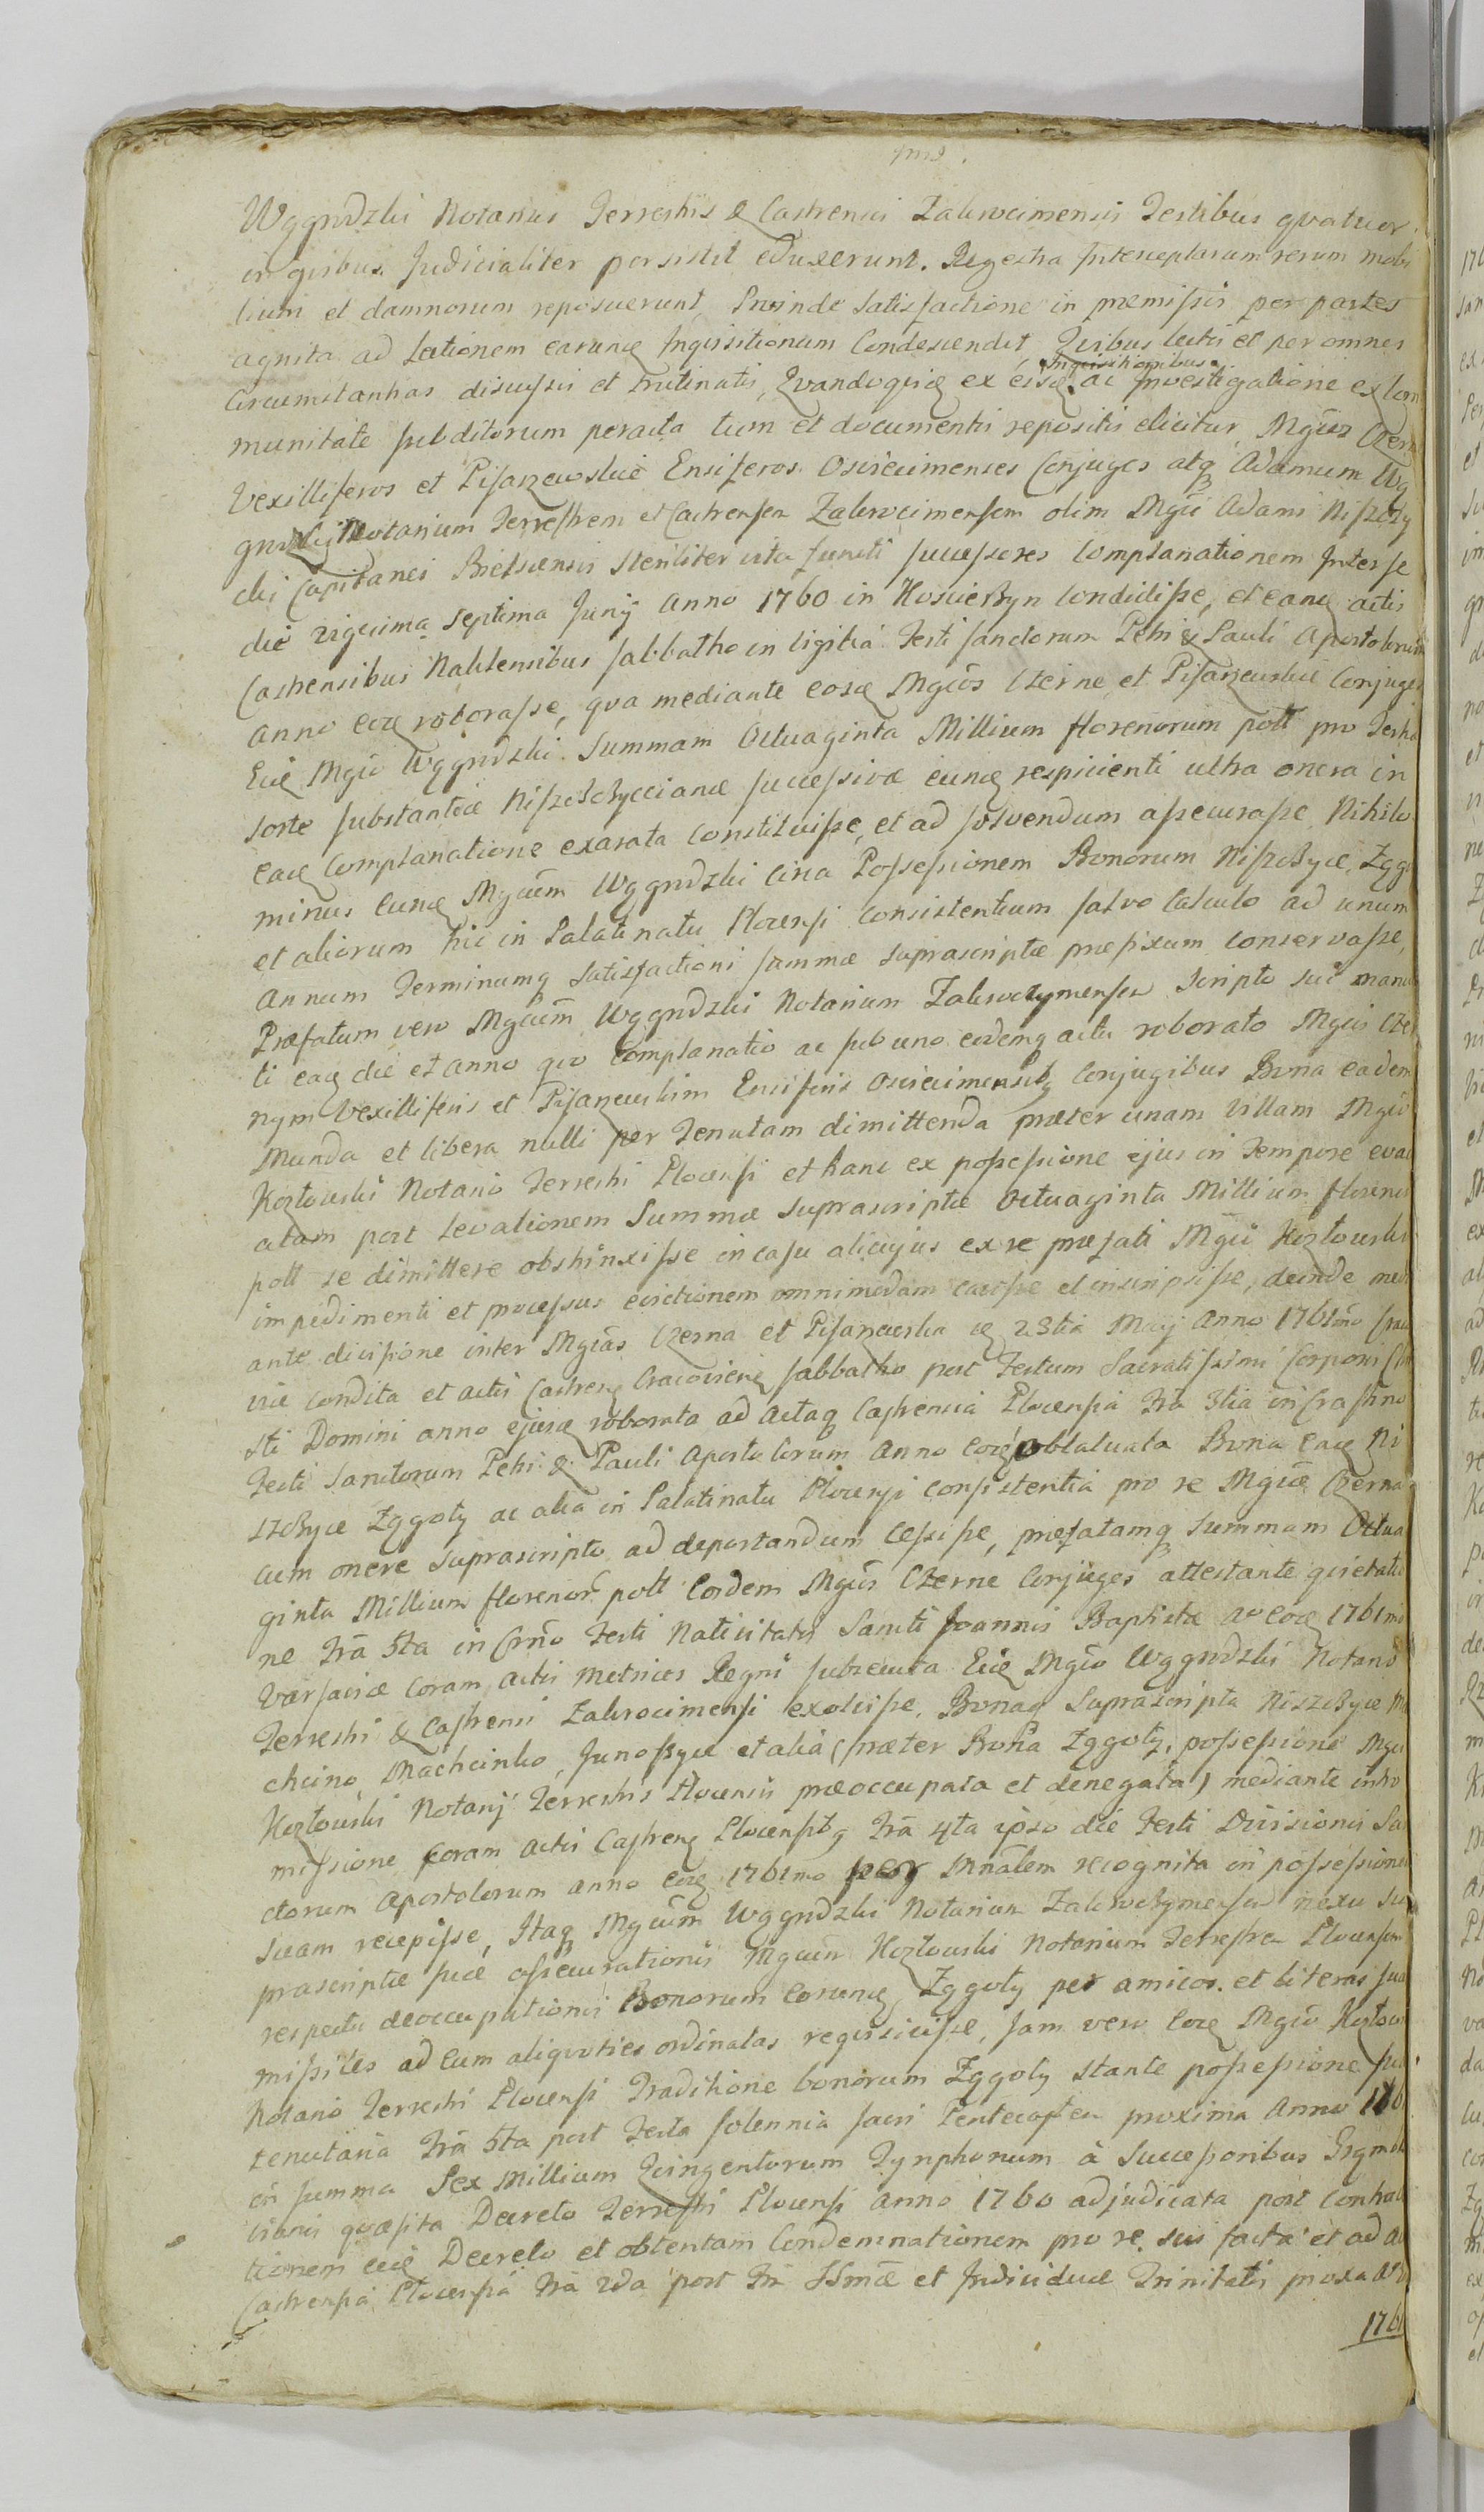 Wggrodzki Notarius Terrestris & Castrensis Zakrocimensis Testibus qvatuor
in qvibus Judicialiter persistit eduxerunt. Regestra Interceptarum rerum mobi
lium et damnorum reposuerunt, Proinde satisfactione in præmissis per partes
agnita ad lectionem earunđ Inqvisitionum Condescendit, Qvibus lectis et per omnes
Circumstantias discussis et trutinatis, Qvandoqviđ ex eisđ Inqvisitionibus ac Investigatione ex Com
munitate subditorum peracta tum et documentis repositis elicitur, Mgcos Czern
Vexilliferos et Pisarzewskie Ensiferos Osviecimenses Conjuges atq Adamum Wg
grodzki Notarium Terrestrem et Castrensem Zakrocimensem olim Mgci Adami Niszczy
cki Capitanei Bielscensis steriliter vita functi successores Complanationem Inter se
die vigesima septima Junij Anno 1760 in Koscierzyn Condidisse, et eanđ actis
Castrensibus Naklensibus sabbatho in vigilia Festi sanctorum Petri & Pauli Apostolorum
Anno eođ roborasse, qva mediante eosđ Mgcos Czerne et Pisarzewskie Conjuges
Eiđ Mgco Wggrodzki Summam Octuaginta Millium florenorum poll pro Tertia
sorte substantiæ Niszczycciana successivæ eunđ respicienti ultra onera in
eađ Complanatione exarata constituisse, et ad solvendum assecurasse Nihilo
minus eunđ Mgcum Wggrodzki circa Possessionem Bonorum Niszczyce, Zggo
et aliorum hic in Palatinatu Plocensi consistentium salvo Calculo ad unum
Annum Terminumq satisfactioni summæ suprascriptæ præfixum conservasse,
Præfatum vero Mgcum Wggrodzki Notarium Zakroczymensem Scripto sui manu
ti eađ die et anno qvo Complanatio ac sub uno eodemq actu roborato Mgcis Czer
nym Vexilliferis et Pisarzewskim Ensiferis Osviecimensibq Conjugibus Bona eadem
Munda et libera nulli per Tenutam dimittenda præter unam Villam Mgco
Kozłowski Notario Terrestri Plocensi et hanc ex possessione ejus in Tempore evacu
atam post levationem Summæ suprascriptæ Octuaginta Millium florenor
poll se dimittere obstrinxisse in casu alicujus ex re præfati Mgci Kozłowski
impedimenti et processus evictionem omnimodam cavisse et inscripsisse, deinde medi
ante divisione inter Mgcas Czerna et Pisarzewska đ 23tia Maij Anno 1761mo Craco
viæ Condita et actis Castrenđ Cracovienđ sabbatho post Festum Sacratissimi Corporis Chri
sti Domini anno ejusđ roborata ad Actaq Castrensia Plocensia Fra 3tia in Crastino
Festi Sanctorum Petri & Pauli Apostolorum Anno eođ oblatuata Bona eađ Ni
szczyce Zggoty ac alia in Palatinatu Plocensi consistentia pro re Mgcæ Czerna
cum onere suprascripto ad deportandum Cessisse, præfatamq summam Octua
ginta Millium florenor poll Eosdem Mgcos Czerne Conjuges attestante qvietatio
ne Fra 5ta in Crno Festi Nativitatis Sancti Joannis Baptistæ Ao eođ 1761mo
Varsaviæ Coram Actis Metrices Regni subsecuta Eiđ Mgco Wggrodzki Notario
Terrestri & Castrensi Zakrocimensi exolvisse, Bonaq Suprascripta Niszczyce M
chcino Machcinko, Junoszyce et alia (præter Bona Zggoty, possessione Mgci
Kozłowski Notarij Terrestris Plocensis præoccupata et denegata) mediante intro
missione Coram Actis Castrenđ Plocensibq Fra 4ta ipso die Festi Divisionis San
ctorum Apostolorum Anno eođ 1761mo per Mnalem recognita in possessionem
suam recepisse, Itaq Mgcum Wggrodzki Notarium Zakroczymensem nexu su
prascriptæ suæ assecurationis Mgcum Kozłowski Notarium Terrestrem Plocensem
respectu deoccupationis Bonorum Eorunđ Zggoty per amicos et literas suas
missiles ad eum aliqvoties ordinatas reqvisivisse, Jam vero eođ Mgco Kozłowski
Notario Terrestri Plocensi Traditione bonorum Zggoty stante possessione sua
tenutaria Fra 5ta post Festa solennia sacri Pentecostes proxima Anno 176
in summa Sex Millium Qvingentorum Tynphonum à Successoribus
vianis qvæsita Decreto Terrestri Plocensi Anno 1760 adjudicata post Contrali
tionem eiđ Decreto et obtentam Condemnationem pro re sua facta et ad Ac
Castrensia Plocensia Fra 2da post Fm SSmæ et Individuæ Trinitatis proxa Ao
1761